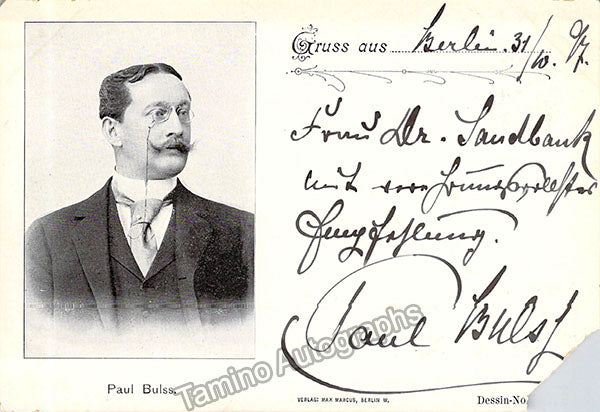 Gruss aus Berlin. 31/10. 97.
Frau Dr. Sandbank
mit verehrungsvollster
Empfehlung.
Paul Bulss
Paul Bulss.
Tamino Autographs
VERLAG: MAX MARCUS, BERLIN W.
Dessin-No.